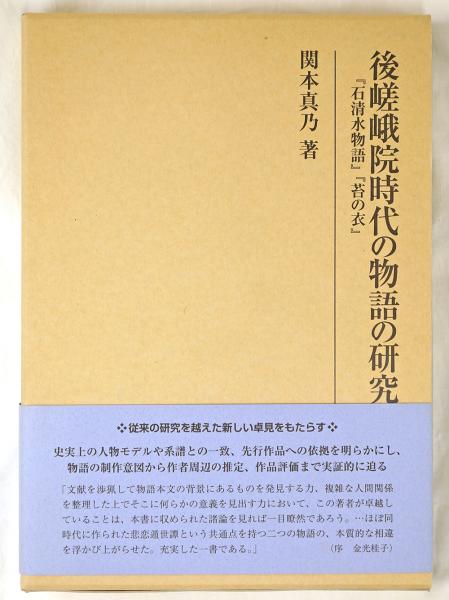 後嵯峨院時代の物語の研究
『石清水物語』『苔の衣』
関本真乃 著
❖従来の研究を越えた新しい卓見をもたらす❖
史実上の人物モデルや系譜との一致、先行作品への依拠を明らかにし、
物語の制作意図から作者周辺の推定、作品評価まで実証的に迫る
「文献を渉猟して物語本文の背景にあるものを発見する力、複雑な人間関係
を整理した上でそこに何らかの意義を見出す力において、この著者が卓越し
ていることは、本書に収められた諸論を見れば一目瞭然であろう。…ほぼ同
時代に作られた悲恋遁世譚という共通点を持つ二つの物語の、本質的な相違
を浮かび上がらせた。充実した一書である。」
（序 金光桂子）